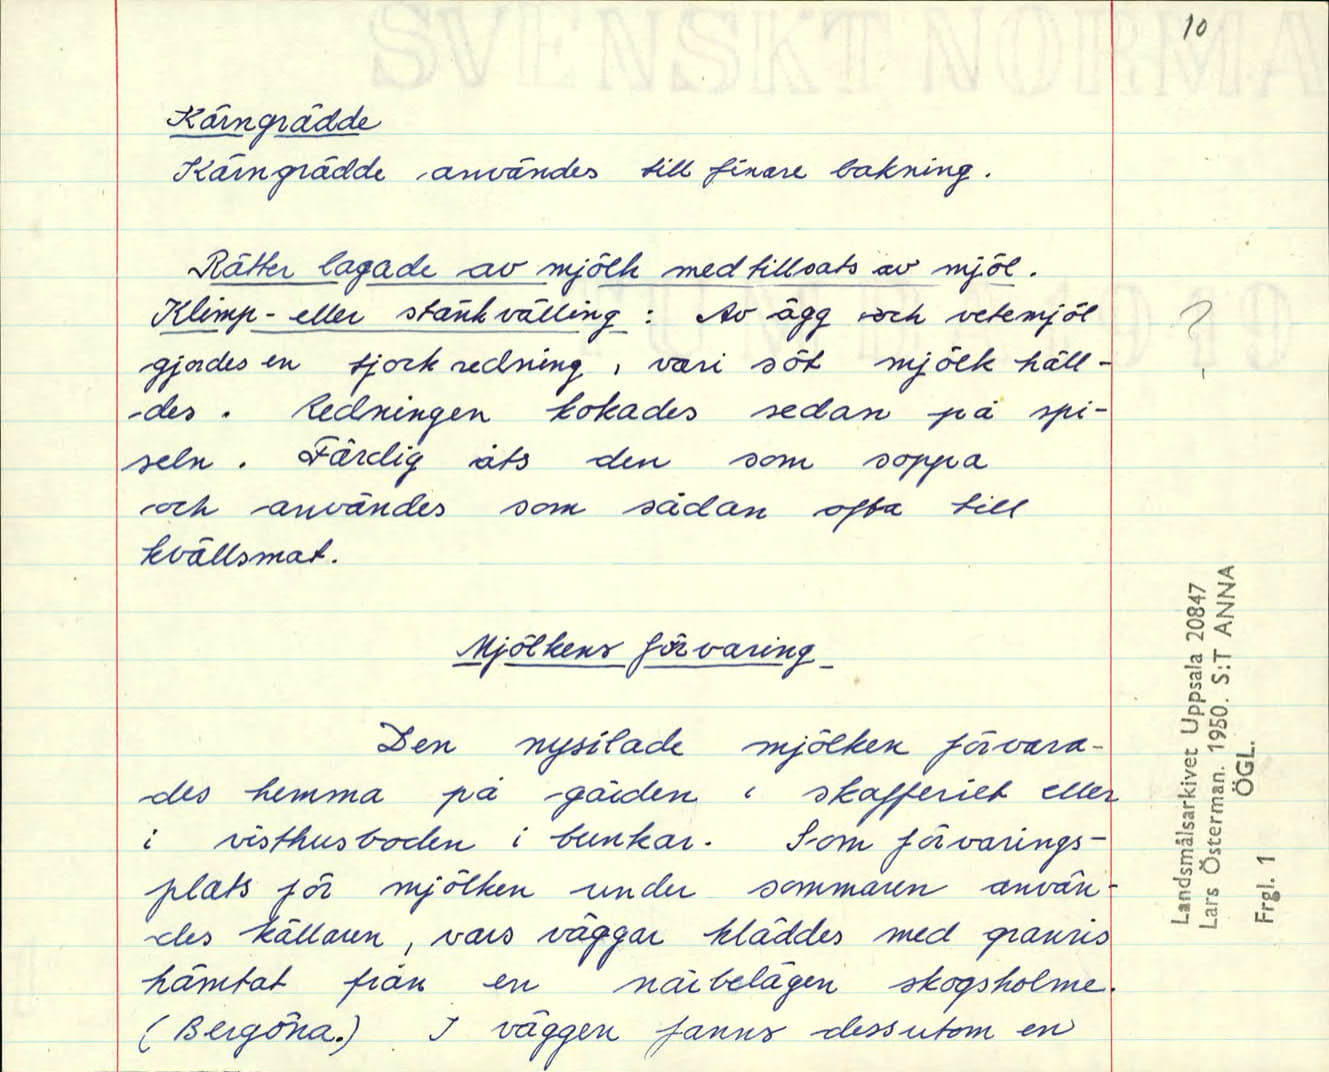 10
Kärngrädde
Kärngrädde användes till finare bakning.
Rätter lagade av mjölk med tillsats av mjöl.
Klimp- eller stänkvälling: Av ägg och vetemjöl
gjordes en tjock redning, vari söt mjölk häll-
des. Redningen kokades sedan på spi-
seln. Färdig åts den som soppa
och användes som sådan ofta till
kvällsmat.
?
Mjölkens förvaring
Den nysilade mjölken förvara-
des hemma på gården i skafferiet eller
i visthusboden i bunkar. Som förvarings-
plats för mjölken under sommaren använ-
des källaren, vars väggar kläddes med granris
hämtat från en närbelägen skogsholme.
(Bergöna.) I väggen fanns dessutom en
Landsmålsarkivet Uppsala 20847
Lars Österman. 1950. S:T ANNA
ÖGL.
Frgl. 1
SVENSKT NORMA
TUMBA 1919